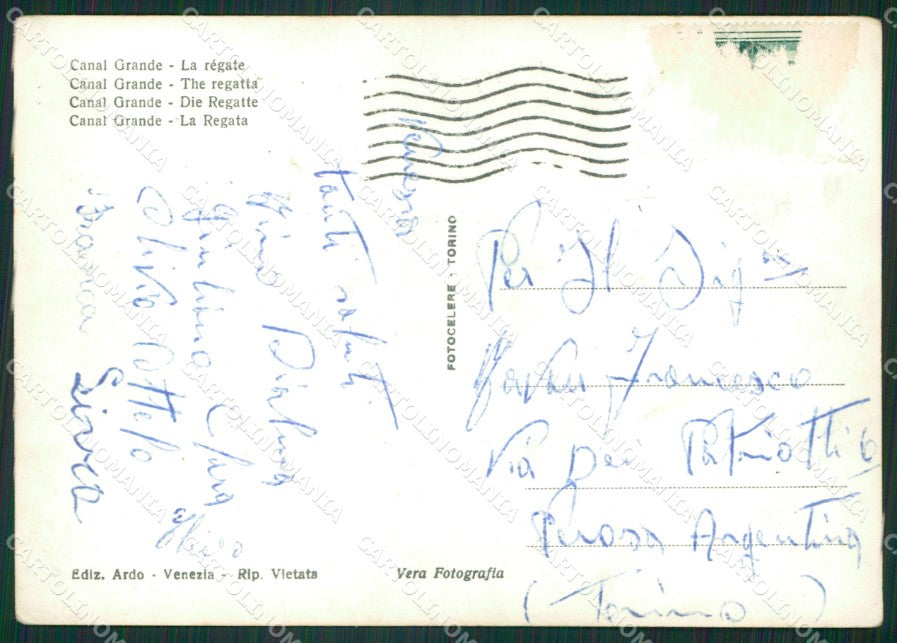 Canal Grande - La régate
Canal Grande - The regatta
Canal Grande - Die Regatte
Canal Grande - La Regata
Venezia
tanti saluti
Giuliana
Olivio Ottelo
Bianca
FOTOCELERE - TORINO
Per Il Sig
Francesco
Via Dei Patriotti 6
Perosa Argentina
(Torino)
Ediz. Ardo - Venezia - Rip. Vietata
Vera Fotografia
CARTOLINOMANIA